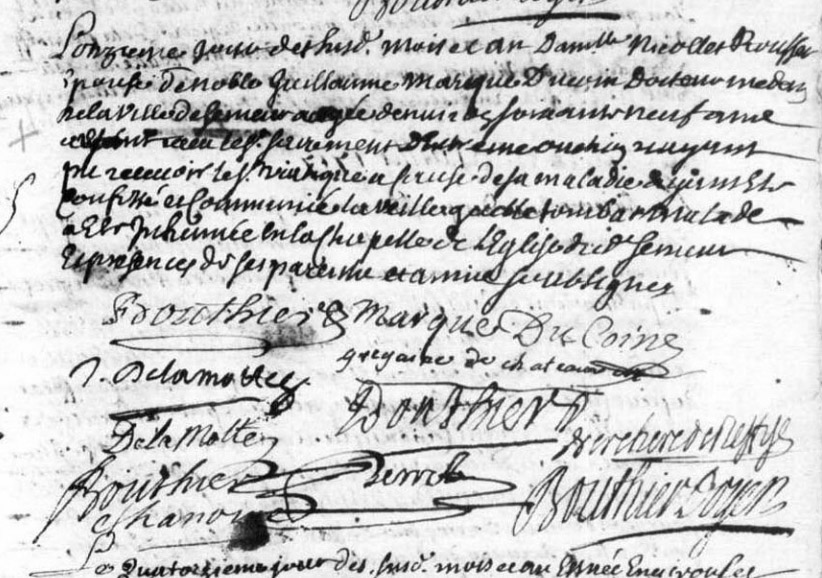 L'onzieme jour des susd. mois et an Dam.lle Nicolle Rousse
epouse de noble Guillaume Marque Ducoin Docteur medecin
de la ville de Semeur agée denviron soixante neuf ans
ayant receu le St. sacrement d'extreme onction nayant
pu recevoir le St. viatique a cause de sa maladie ayant este
confessée et Communiée la veille quelle tomba malade
a Este Inhumée En la Chapelle de l'Eglise dud. Semeur
En presences de ses parens et amis soubsignes
Bouthier Marque Du Coin
gregoire de
J. Delamotte
Bouthier
De la Motte
Bouthier Perret Bouthier Doyen
Chanoine
Le Quatorzieme jour des susd. mois et an